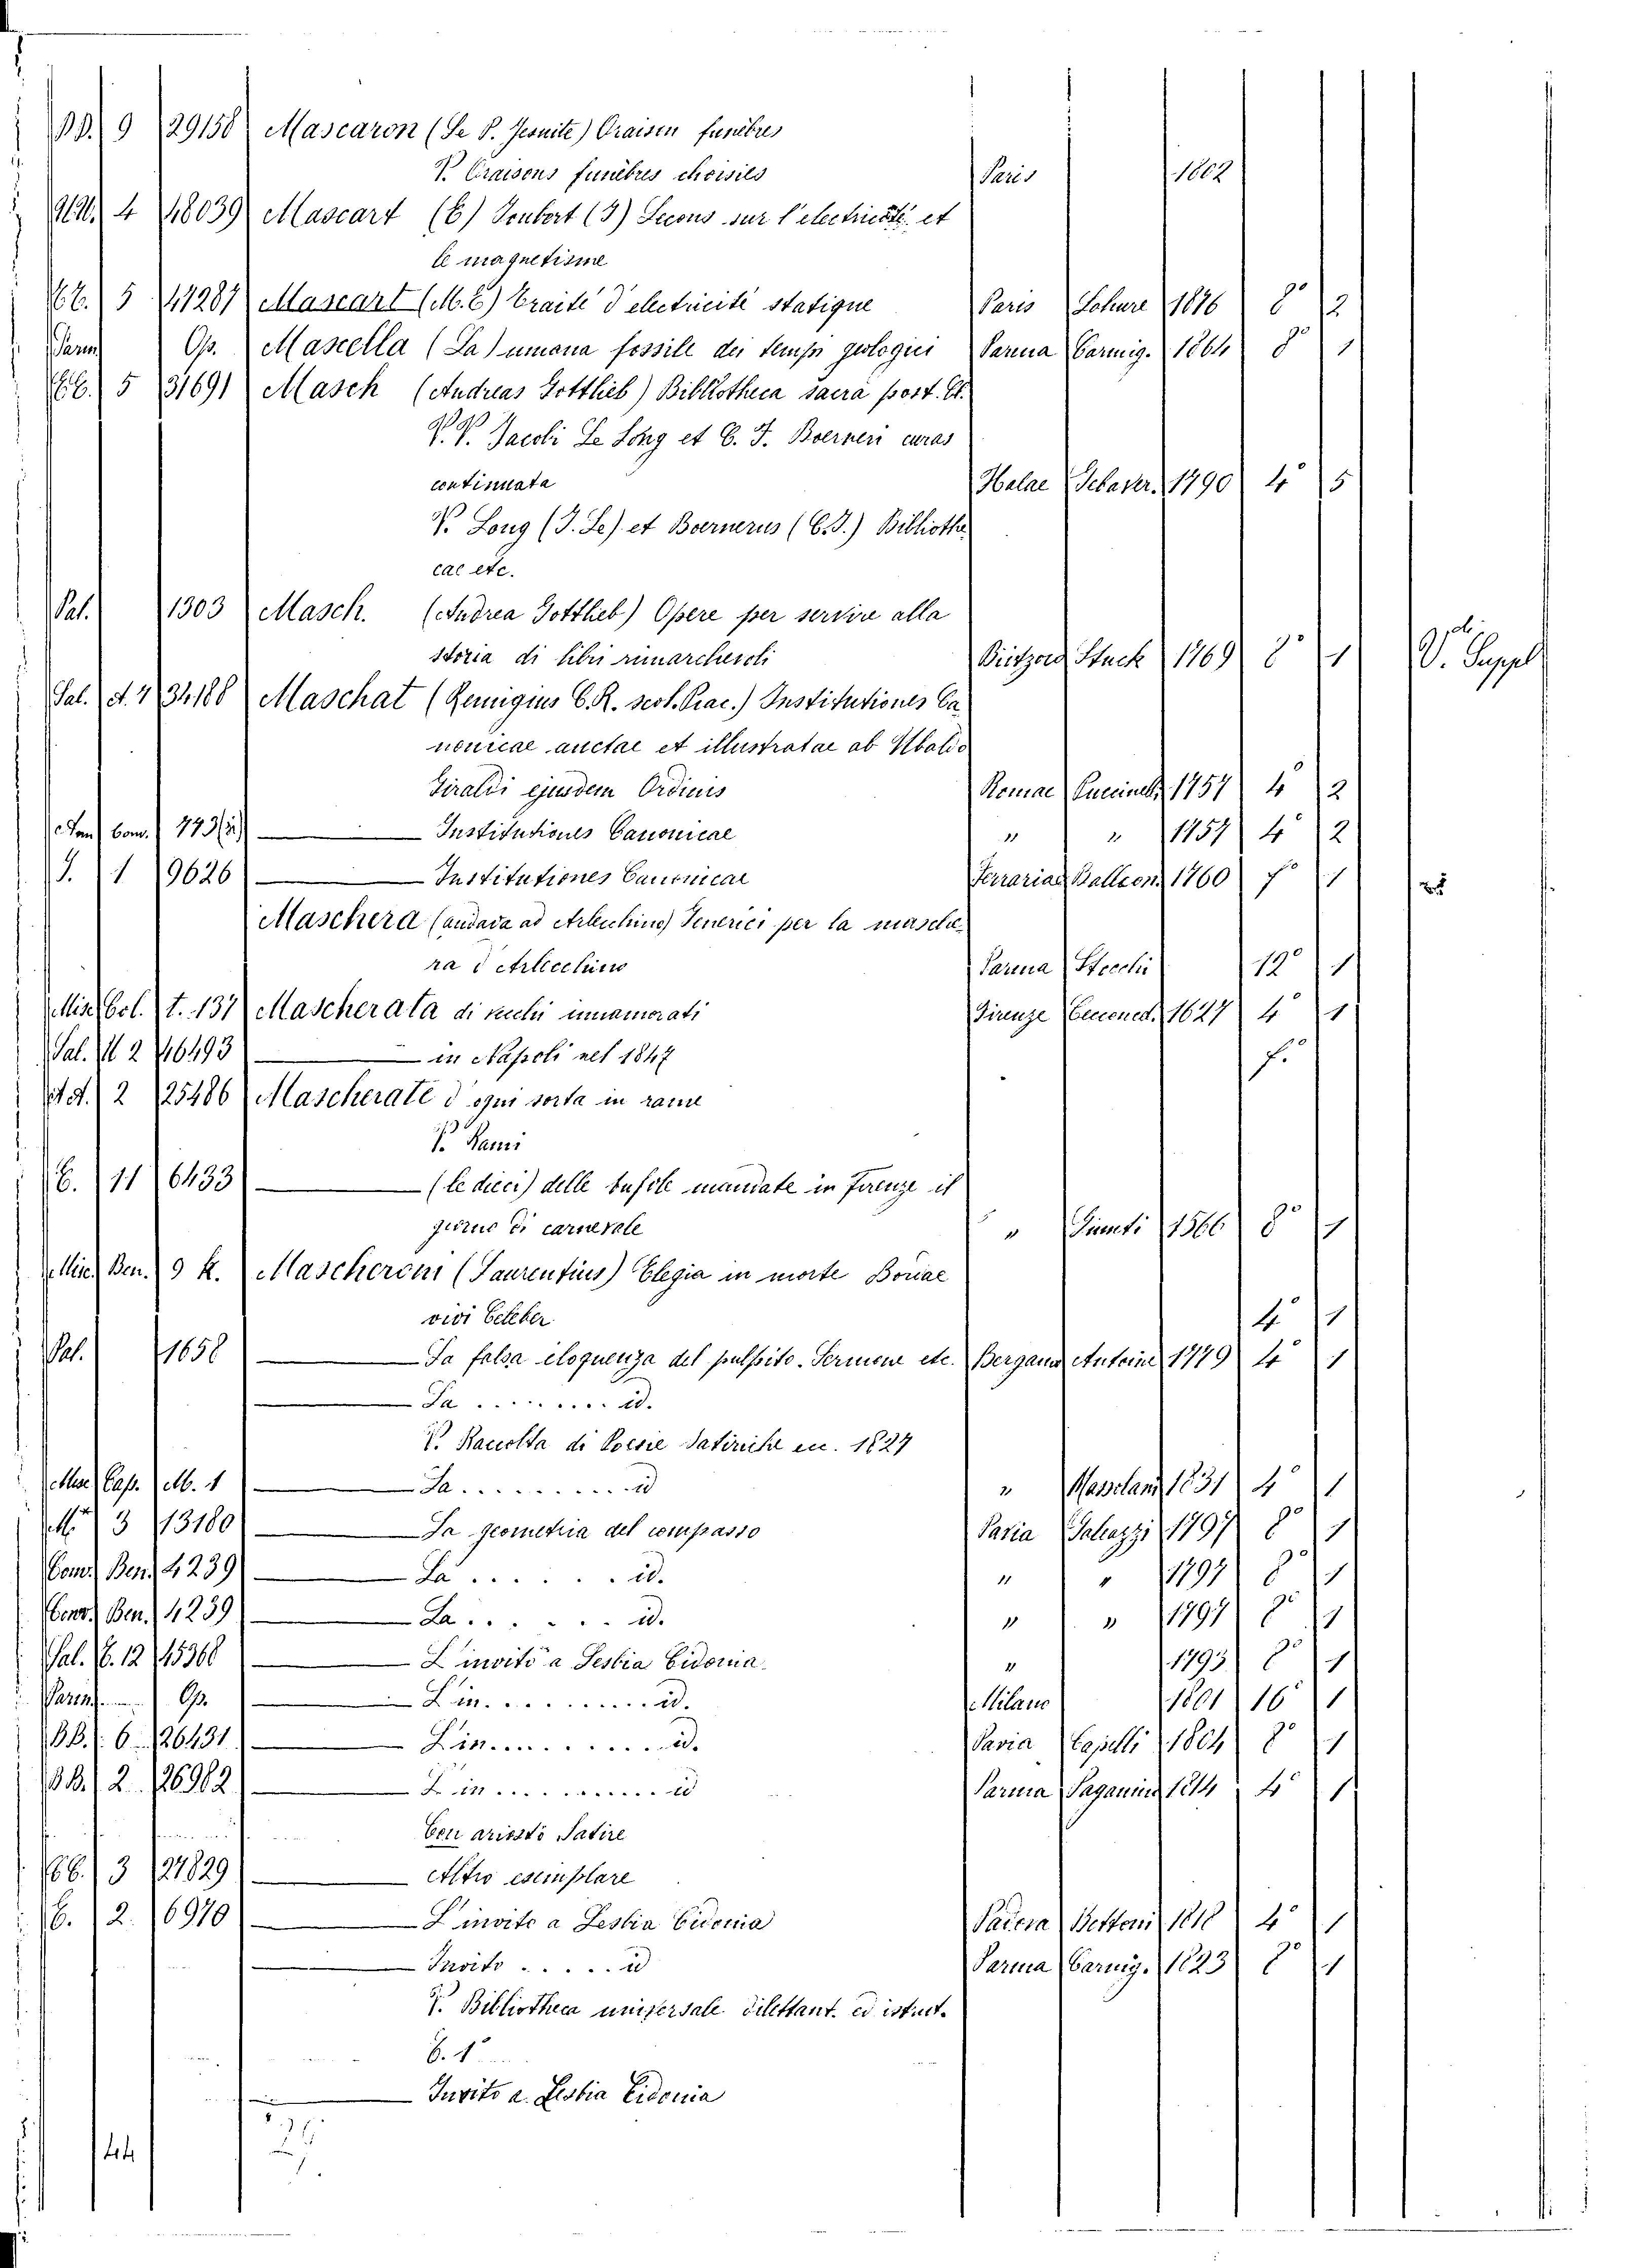 DD. 9 29158 Mascaron (Le P. Jesuite) Oraisen funèbres
V. Oraisons funèbres choisies Paris 1802
4 48039 Mascart (E) Joubert (J) Lecons sur l'electricité et
le magnetisme
5 41287 Mascart (M. E) Traité d'electricité statique Paris 1876 8° 2
Parm Op. Mascella (La) umana fossile dei tempi geologici Parma Carmig. 1864 8° 1
5 31691 Masch (Andreas Gottlieb) Bibliotheca sacra post. Cl.
V. V. Jacobi Le Long et C. F. Boerneri curas
continuata Halae Gebaver. 1790 4° 5
V. Long (J. Le) et Boernerus (C. F.) Bibliothe
cae etc.
Pal. 1303 Masch. (Andrea Gottlieb) Opere per servire alla
storia di libri rimarchevoli Stuck 1769 8° 1 V. Suppl
Pal. A. 4 34188 Maschat (Remigius C. R. scol. Piae.) Institutiones Ca
nonicae auctae et illustratae ab Ubaldo
Giraldi ejusdem Ordinis Romae Puccinelli 1757 4° 2
Com. 773(2) Institutiones Canonicae " " 1757 4° 2
J. 1 9626 Institutiones Canonicae Ferrariae Balleon. 1760 f° 1
Maschera (andava ad Arlecchino) Generici per la masche
ra d'Arlecchino Parma Stocchi 12° 1
Mis. Col. t. 137 Mascherata di vecchi innamorati Firenze 1627 4° 1
Pal. 2 46493 in Napoli nel 1847 f.
2 25486 Mascherate d'ogni sorta in rame
V. Rami
C. 11 6433 (le dieci) delle bufole mandate in Firenze il
giorno di carnevale " Giunti 1566 8° 1
Misc. Ben. 9 k. Mascheroni (Laurentius) Elegia in morte Boriae
vivi Celeber 4° 1
Pal. 1658 La falsa eloquenza del pulpito. Sermone etc. Bergamo Antoine 1779 4° 1
La ......... id.
V. Raccolta di Poesie Satiriche en. 1827
Cap. M. 1 La .......... id " 1831 4° 1
3 13180 La geometria del compasso Pavia Galeazzi 1797 8° 1
Com. Ben. 4239 La ...... id. " " 1797 8° 1
Com. Ben. 4239 La ...... id. " " 1797 8° 1
Pal. C. 12 15368 L'invito a Lesbia Cidonia. " 1793 8° 1
Parm. Op. L'in. ........ id. Milano 1801 16° 1
BB. 6 26431 L'in ........ id. Pavia Capelli 1804 8° 1
BB. 2 26982 L'in ........ id Parma Paganino 1814 4° 1
Con ariosto Satire
3 27829 Altro esemplare
C. 2 6970 L'invito a Lesbia Cidonia Padova Bettoni 1818 4° 1
Invito ..... id Parma Carmig. 1823 8° 1
V. Bibliotheca universale dilettant. ed istrut.
C. 1°
Invito a. Lesbia Cidonia
44